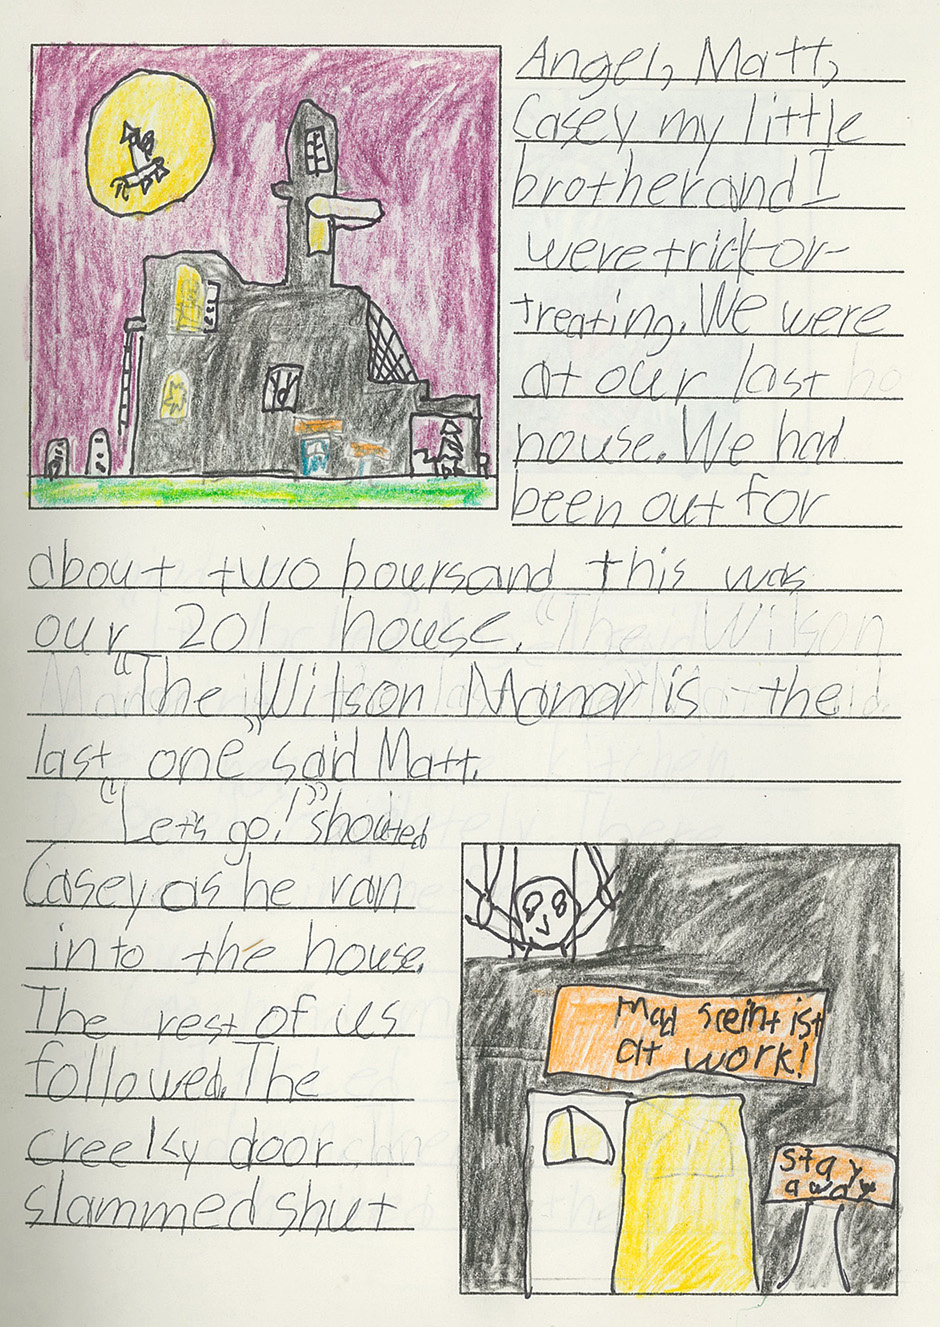 Angel, Matt,
Casey my little
brother and I
were trick-or-
treating. We were
at our last ho
house. We had
been out for
about two hours and this was
our 201 house. "The Wilson
"The Wilson Manor is the
last one" said Matt.
"Let's go!" shouted
Casey as he ran
into the house.
The rest of us
followed. The
creeky door
slammed shut
Mad scintist
at work!
stay
away